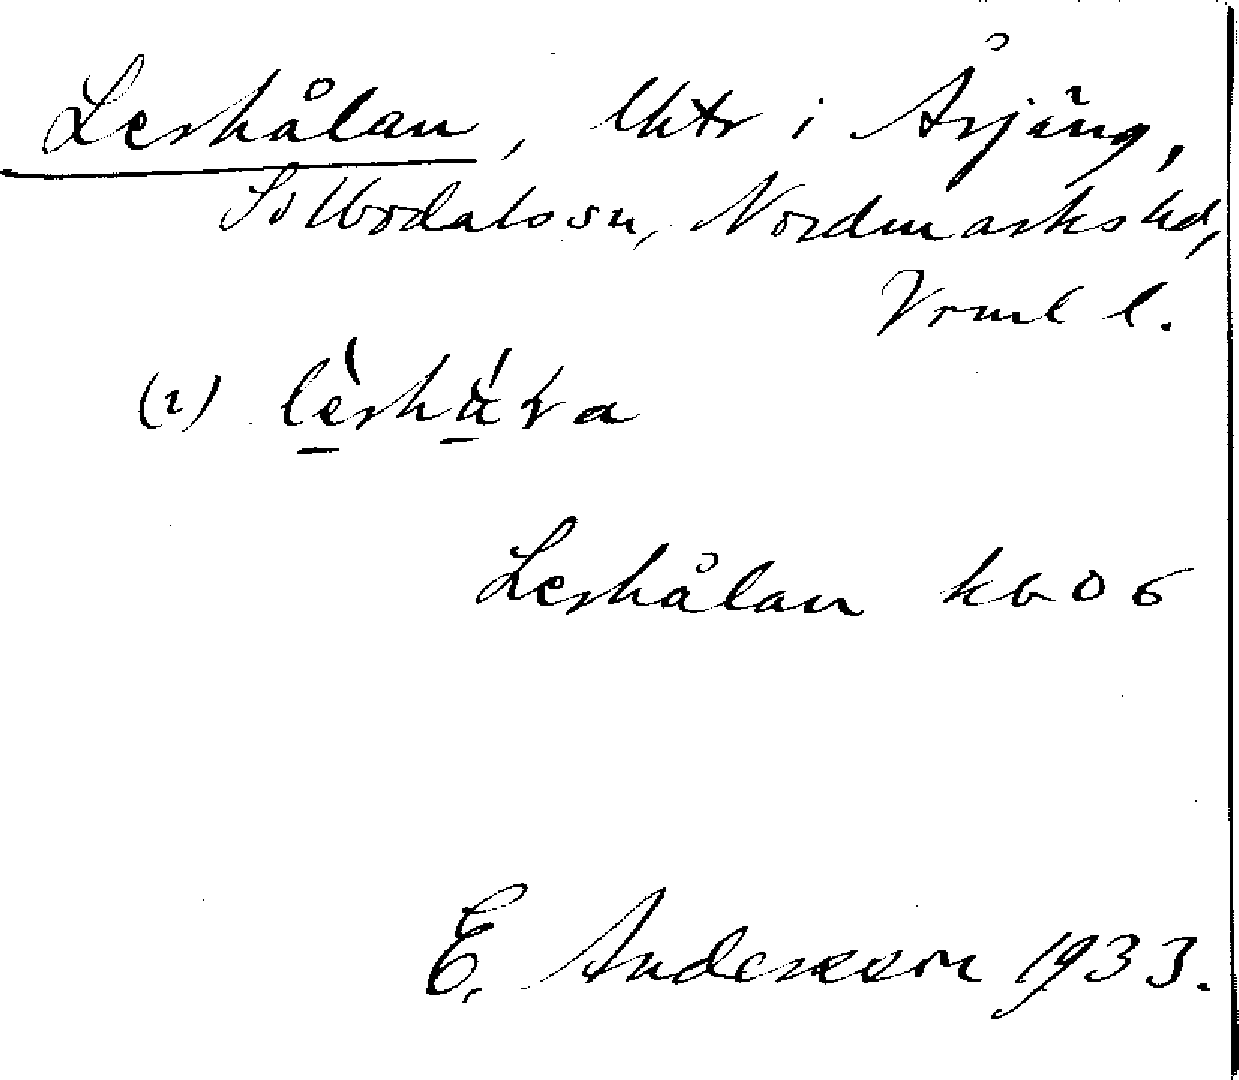 Leshålan, lht i Årjäng,
Silbodals sn, Nordmarks hd,
Vrml l.
(2) lèshá̱ɽa
Leshålan kb 06
E. Andersson 1933.